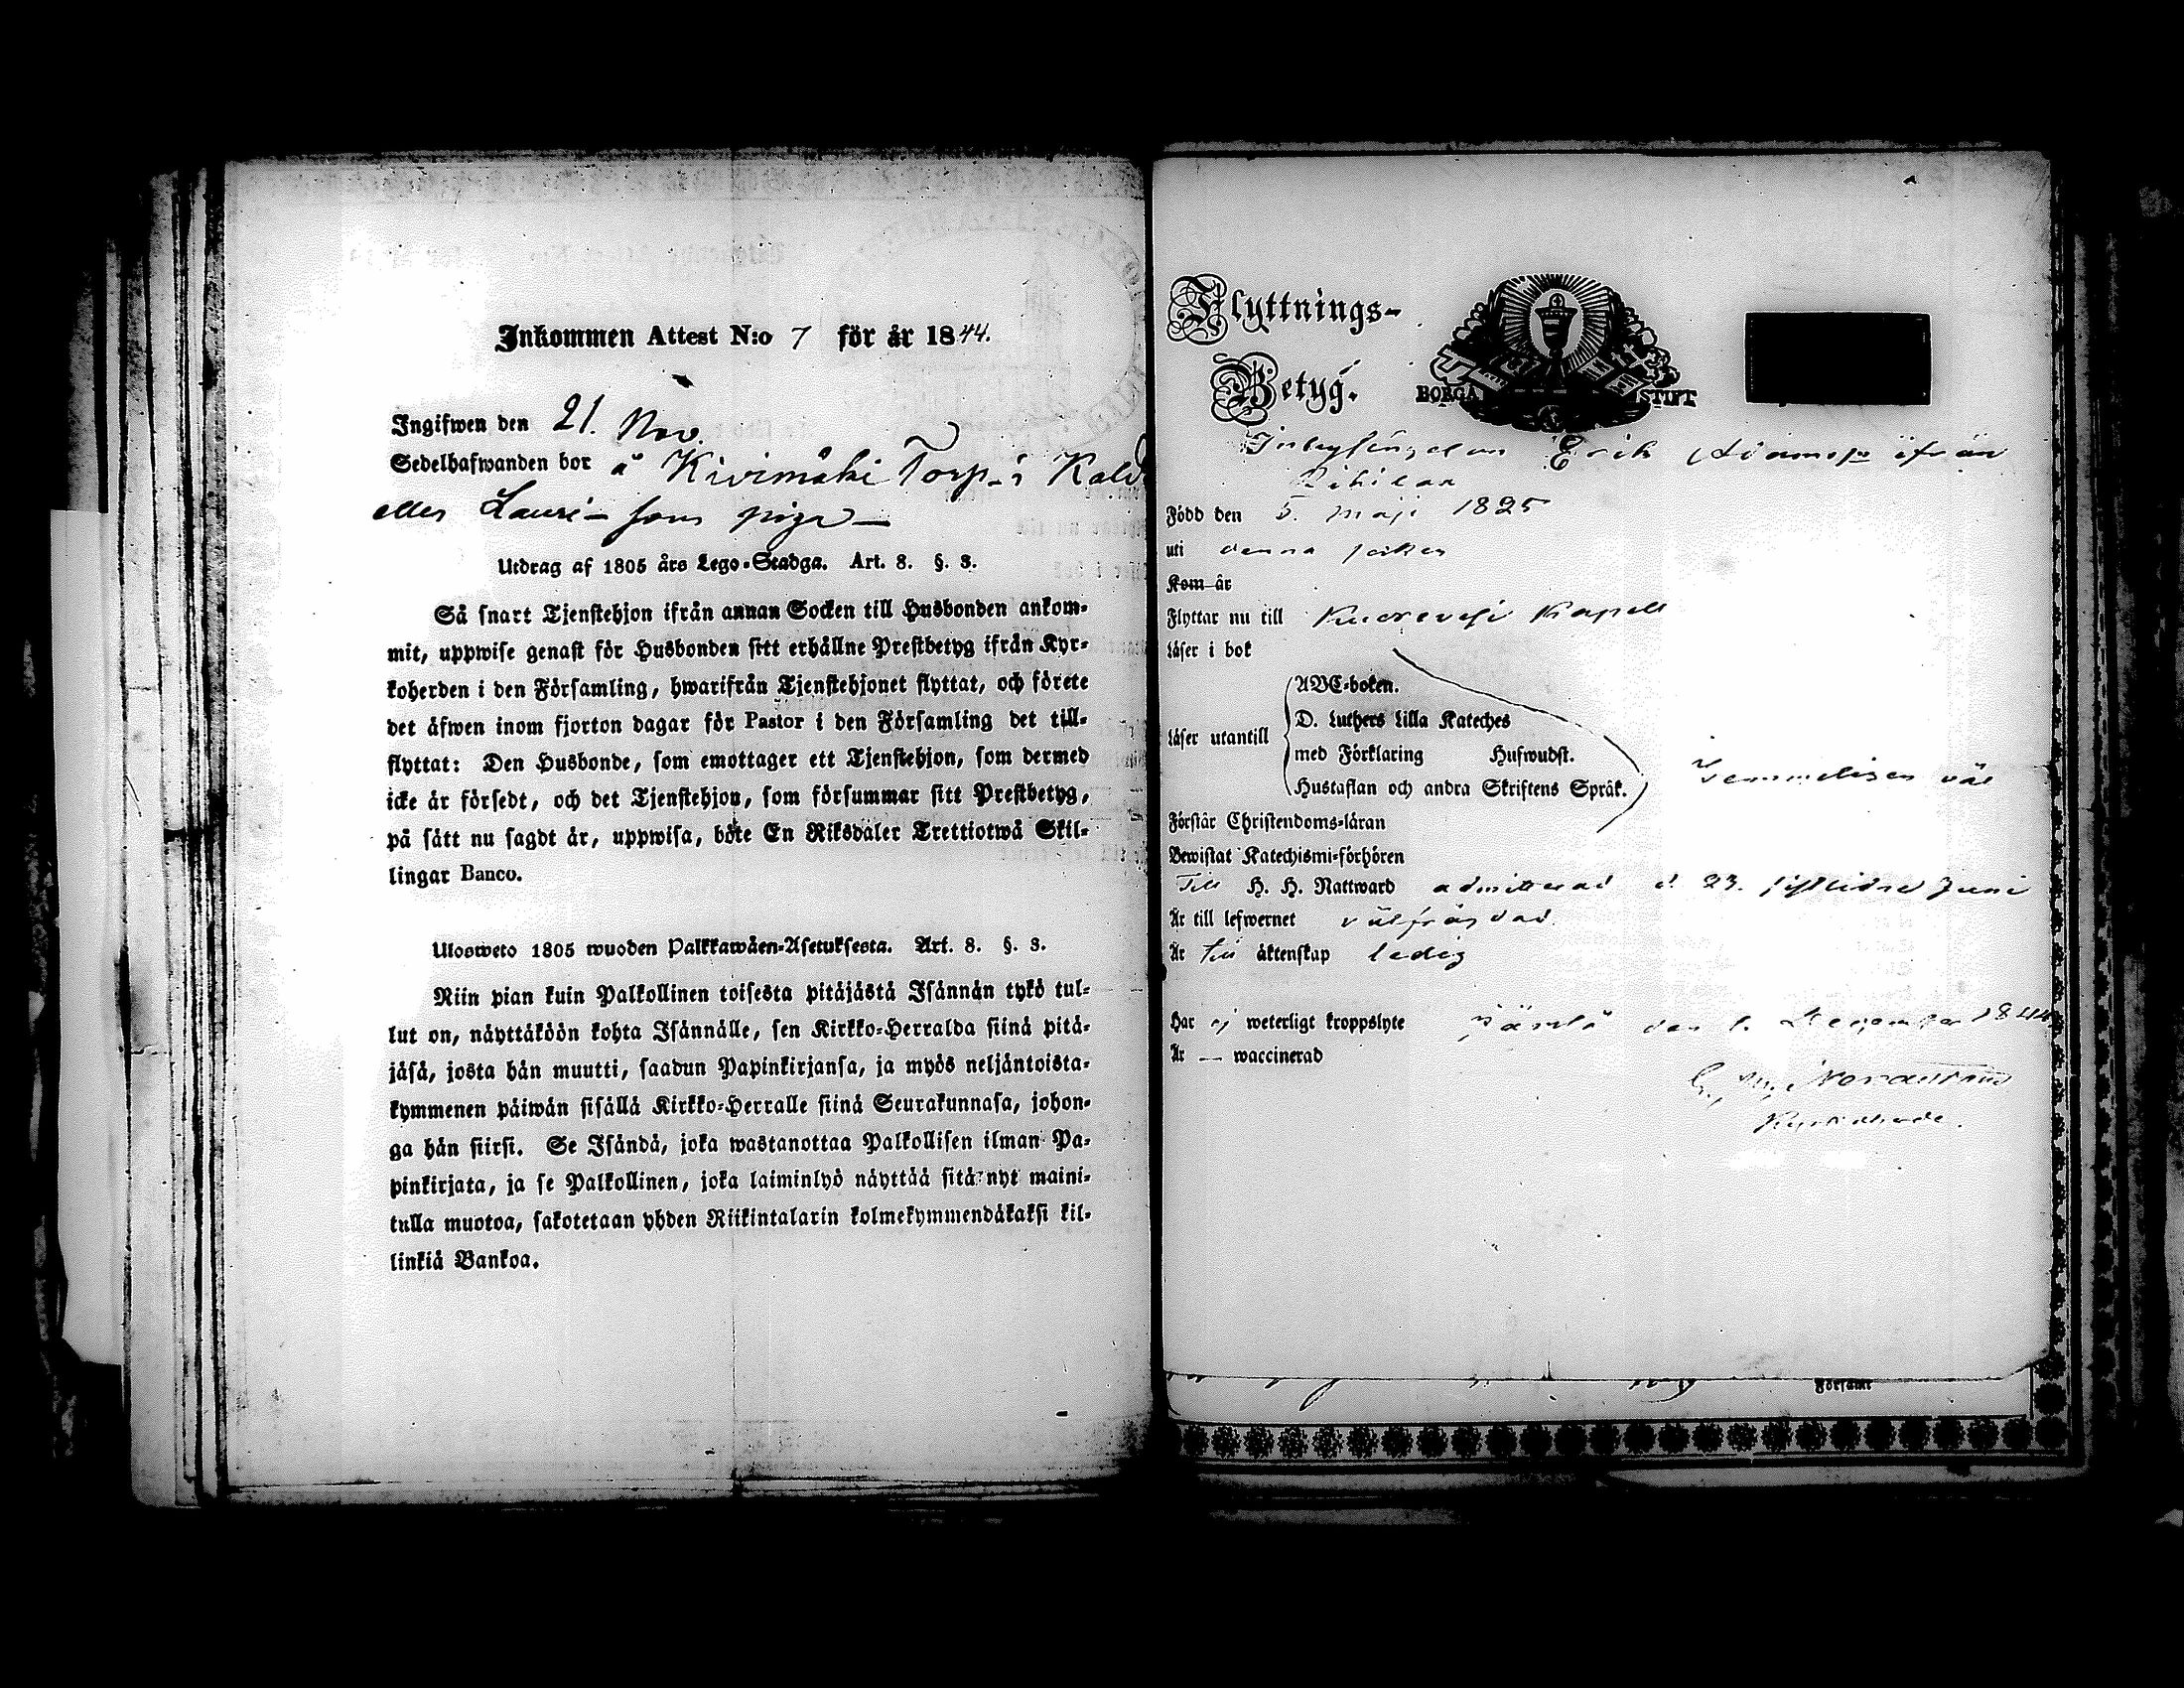 Inkommen Attest N:o 7 för år 1844.
Ingifwen den 21. Nov.
Sedelhafwanden bor å Kivimäki Torp i
eller Lauri som piga
Utdrag af 1805 års Lego-Stadga. Art. 8. §. 3.
Så snart Tjenstehjon ifrån annan Socken till Husbonden ankom-
mit, uppwise genast för Husbonden sitt erhållne Prestbetyg ifrån Kyr-
koherden i den Församling, hwarifrån Tjenstehjonet flyttat, och förete
det äfwen inom fjorton dagar för Pastor i den Församling det till-
flyttat: Den Husbonde, som emottager ett Tjenstehjon, som dermed
icke är försedt, och det Tjenstehjon, som försummar sitt Prestbetyg,
på sätt nu sagdt är, uppwisa, böte En Riksdaler Trettiotwå Skil-
lingar Banco.
Ulosweto 1805 wuoden Palkkawäen-Asetuksesta. Art. 8. §. 3.
Niin pian kuin Palkollinen toisesta pitäjästä Isännän tykö tul-
lut on, näyttäköön kohta Isännälle, sen Kirkko-Herralda siinä pitä-
jäsä, josta hän muutti, saadun Papinkirjansa, ja myös neljäntoista-
kymmenen päiwän sisällä Kirkko-Herralle siinä Seurakunnasa, johon-
ga hän siirsi. Se Isändä, joka wastanottaa Palkollisen ilman Pa-
pinkirjata, ja se Palkollinen, joka laiminlyö näyttää sitä nyt maini-
tulla muotoa, sakotetaan yhden Riikintalarin kolmekymmendäkaksi kil-
linkiä Bankoa.
Flyttnings-
Betyg.
BORGÅ STIFT
Erik Adamsson ifrån
Född den 5. Maji 1825
uti denna socken
Kom år
Flyttar nu till Kuorevesi Kapell
Läser i bok
ABC-boken.
D. Luthers Lilla Kateches
Läser utantill
med Förklaring Hufwudst.
Hustaflan och andra Skriftens Språk.
Temmeligen väl
Förstår Christendoms-läran
Bewistat Katechismi-förhören
Till H. H. Nattward admitterad d. 23. sistlidne Juni
Är till lefwernet välfrägdad.
Är till äktenskap ledig
Har ej weterligt kroppslyte
Jämsä den 1. December 1844
Är — waccinerad
Kyrkoherde.
Församl